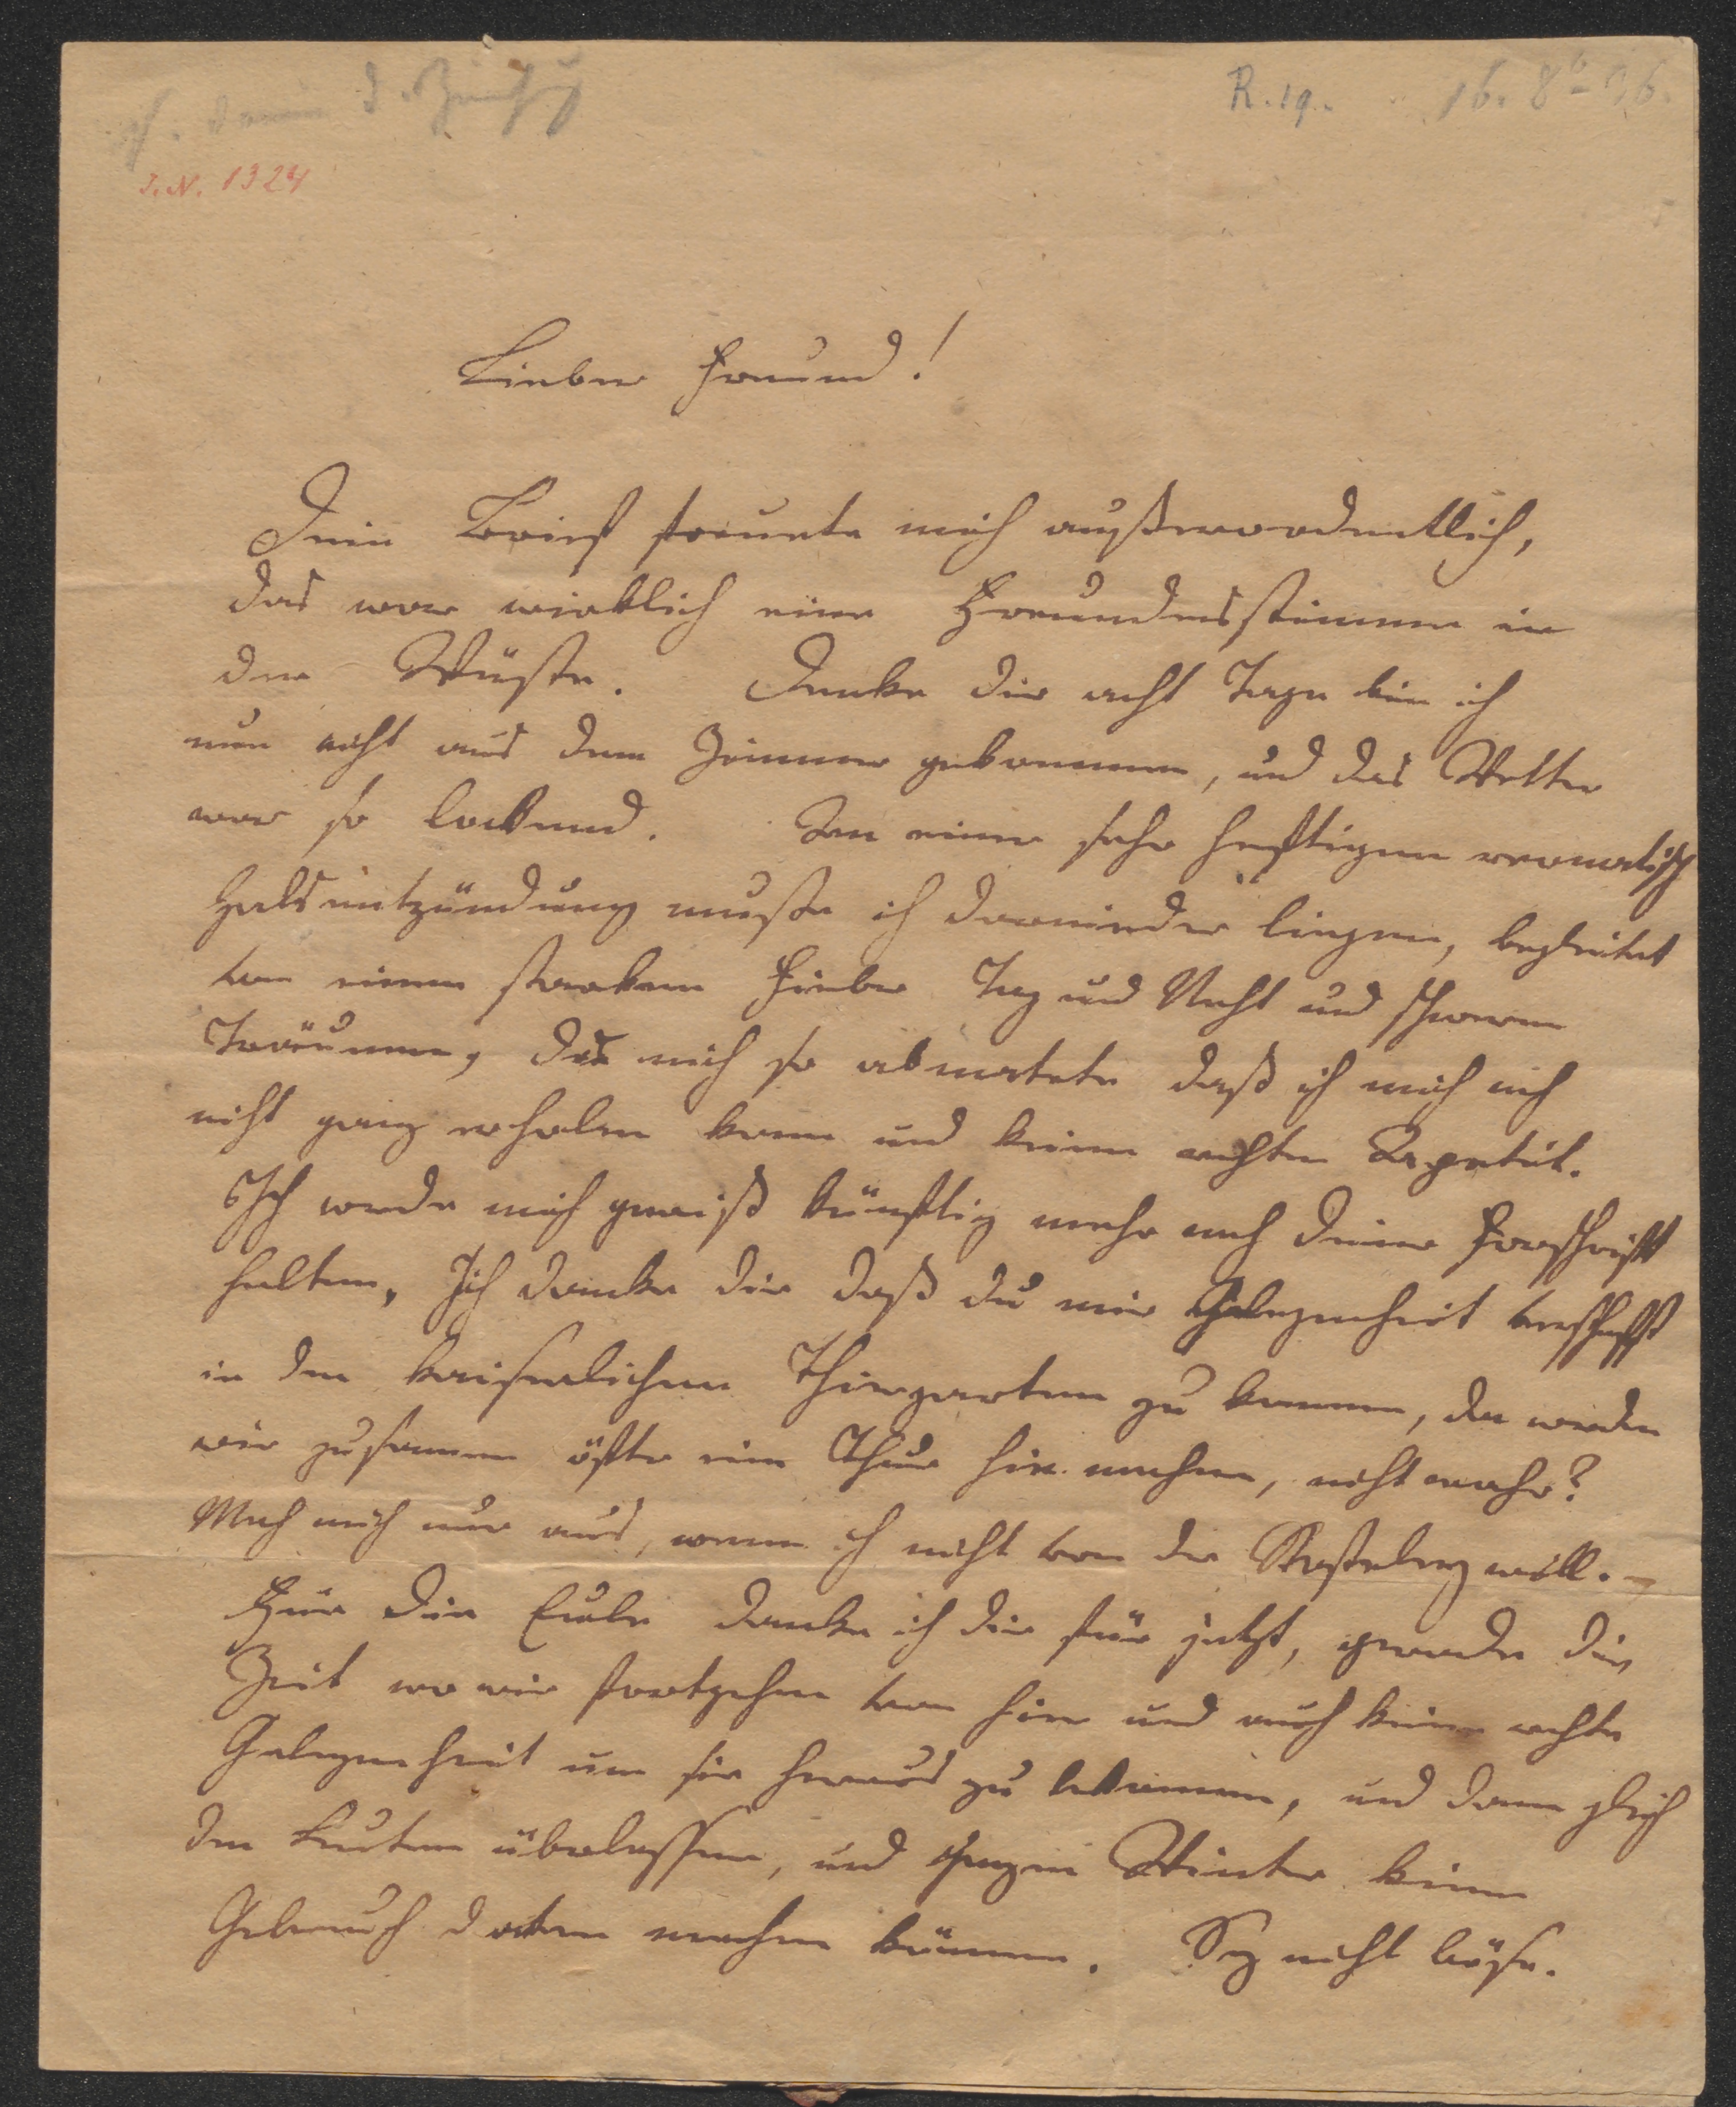 R. 19.
16. 8b 96.
I.N. 1324
Lieber Freund!
Dein Brief freute mich außerordentlich,
das war wirklich eine Freundesstimme in
der Wüste. Denke dir acht Tage bin ich
nun nicht aus dem Zimmer gekommen, und das Wetter
war so lockend. An einer sehr heftigen reomatisch
Halsentzündung mußte ich darnieder liegen, begleitet
von einem starken Fieber Tag und Nacht und schweren
Träumen, das mich so abmatete daß ich mich noch
nicht ganz erholen kann und keinen rechten Apetit.
Ich werde mich gewiß künftig mehr nach deiner Forschrift
halten, Ich danke dir daß du mir Gelegenheit verschafft
in den kaiserlichen Thiergarten zu kommen, da werden
wir zusammen öfter eine Thur hin machen, nicht wahr?
Mach mich nur aus, wenn ich nicht von der will.
Für die Eule danke ich dir für jetzt, gerade die
Zeit wo wir fortgehen von hier und auch keine rechte
Gelegenheit um sie heraus zu bekommen, und dann gleich
den Leuten überlassen, und Winter keinen
Gebrauch machen können. Sey nicht böse.